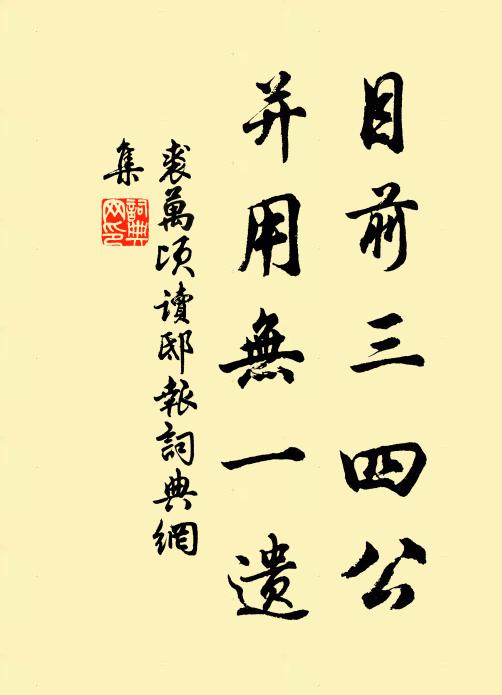 目前三四公
并用無一遗
裘萬頃讀邸報詞典網
集
詞典
网印